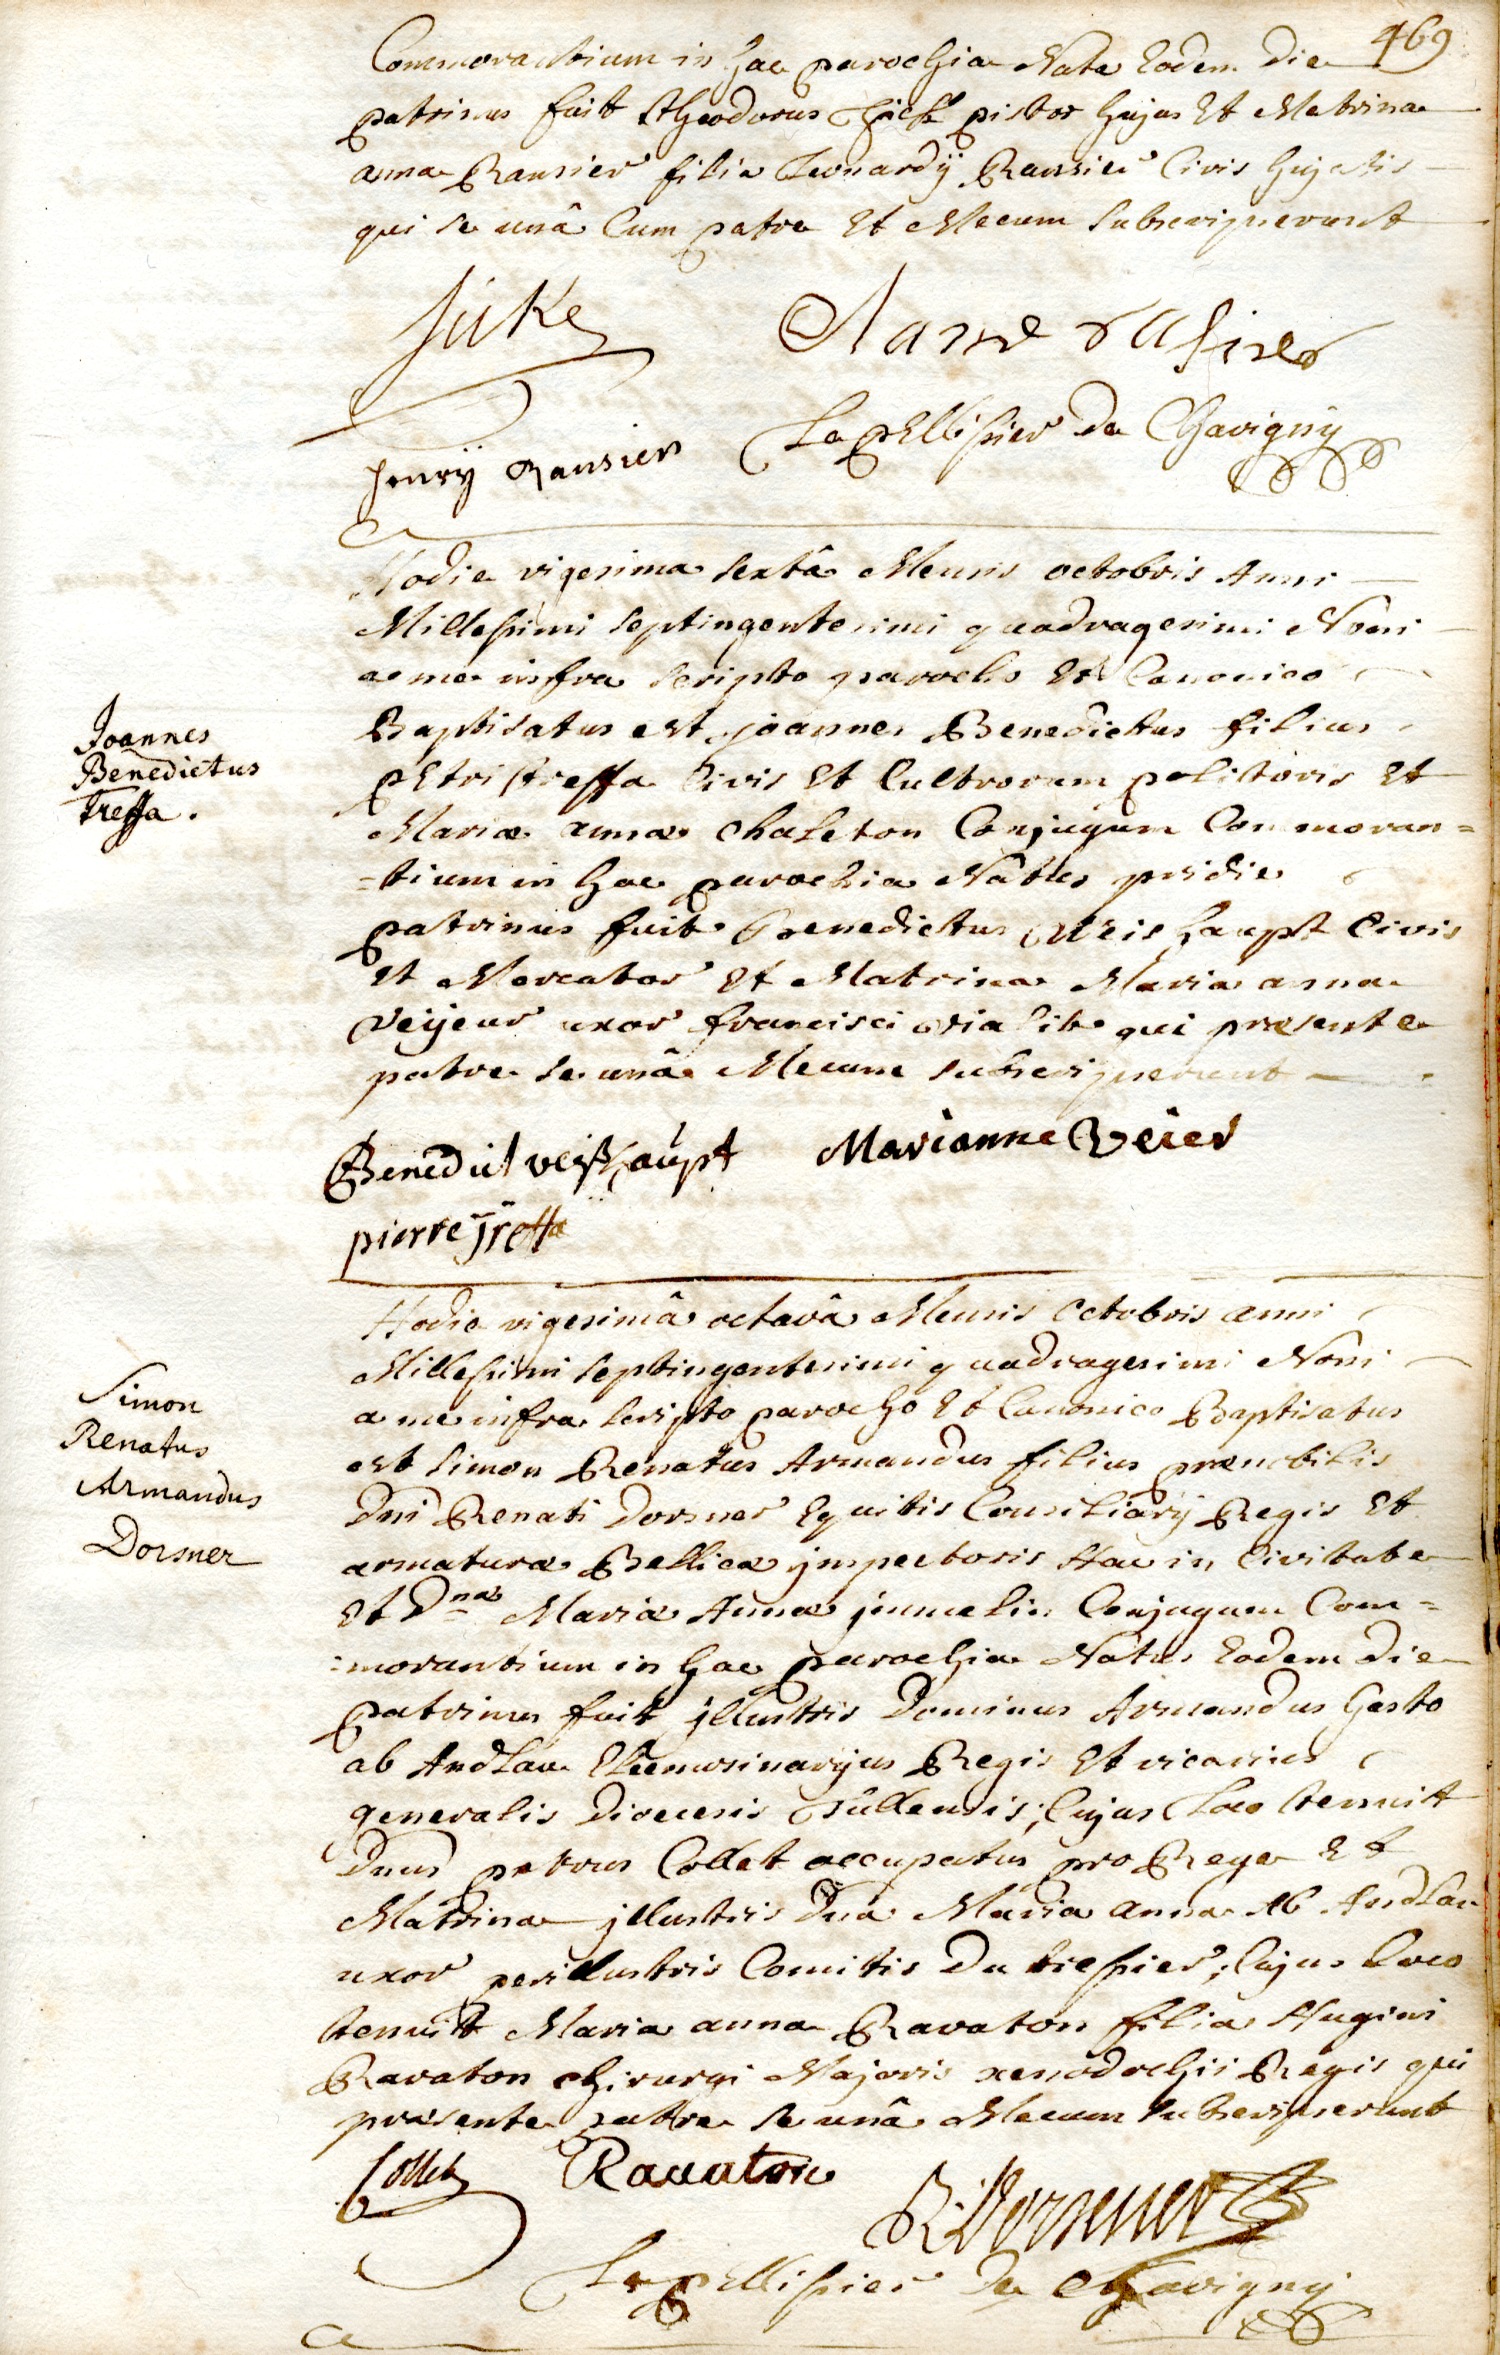 469
Commorantium in hac parochia Nata Eodem Die
patrinus fuit theodorus pistor hujas Et Matrina
anna Ransier filia Leonardÿ Ransier Civis hujatis
qui se unâ Cum patre Et Mecum Subscripserunt
henrÿ Ransier Le pEllissier De Chavigny
Hodie vigesima sextâ Mensis octobris Anni
Millesimi septingentesimi quadragesimi Noni
a me infra scripto parocho Et Canonico
Joannes
Benedictus
Treffa.
Baptisatus est joannes Benedictus filius
pEtri treffa Civis Et Cultrorum politoris Et
Mariæ annæ chaleton Conjugum Commoran=
=tium in hac parochia Nâtus pridie
patrinus fuit Benedictus Weis haupt Civis
Et Mercator Et Matrina Maria anna
Veijeur uxor francisci vialit qui præsente
patre se unâ Mecum subscripserunt
Benedict veisshaupt Marianne Veier
pierre Treffa
Hodie vigesimâ octavâ Mensis Octobris anni
Millesimi septingentesimi quadragesimi Noni
Simon
Renatus
Armandus
Dorsner
a me infra scripto parocho Et Canonico Baptisatus
est Simon Renatus Armandus filius prænobilis
Dni Renati Dorsner Equitis Consiliarÿ Regis Et
armaturæ Bellicæ inspectoris Hac in Civitate
Et Dnæ Mariæ Annæ jumelin Conjugum Com=
=morantium in hac parochia Natus Eodem die
patrinus fuit jllustris Dominus Armandus Gasto
ab Andlau Eleemosinarijus Regis Et vicarius
generalis Dioecesis Tullensis; Cujus Loco tenuit
Dnus petrus Collet occupatus pro Rege Et
Matrina jllustris Dna Maria anna Ab Andlau
uxor perillustris Comitis Du ; Cujus Loco
tenuit Maria anna Ravaton filia Hugini
Ravaton chirurgi Majoris xenodochii Regis qui
præsente patre se unâ Mecum subscripserunt
Collet Ravaton R. Dorsner
Le pEllissier De Chavigny